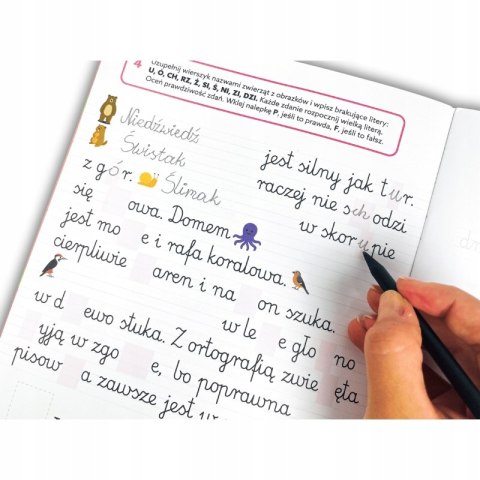 4 Uzupełnij wierszyk nazwami zwierząt z obrazków i wpisz brakujące litery:
U, Ó, CH, RZ, Ż, SI, Ś, NI, ZI, DZI. Każde zdanie rozpocznij wielką literą.
Oceń prawdziwość zdań. Wklej nalepkę P, jeśli to prawda, F, jeśli to fałsz.
Niedźwiedź jest silny jak tur.
Świstak raczej nie schodzi
z gór. Ślimak w skorupie
się owa. Domem
jest mo e i rafa koralowa.
cierpliwie aren i na on szuka.
w le e gło no
w d ewo stuka. Z ortografią zwie ęta
yją w zgo e, bo poprawna
pisow a zawsze jest